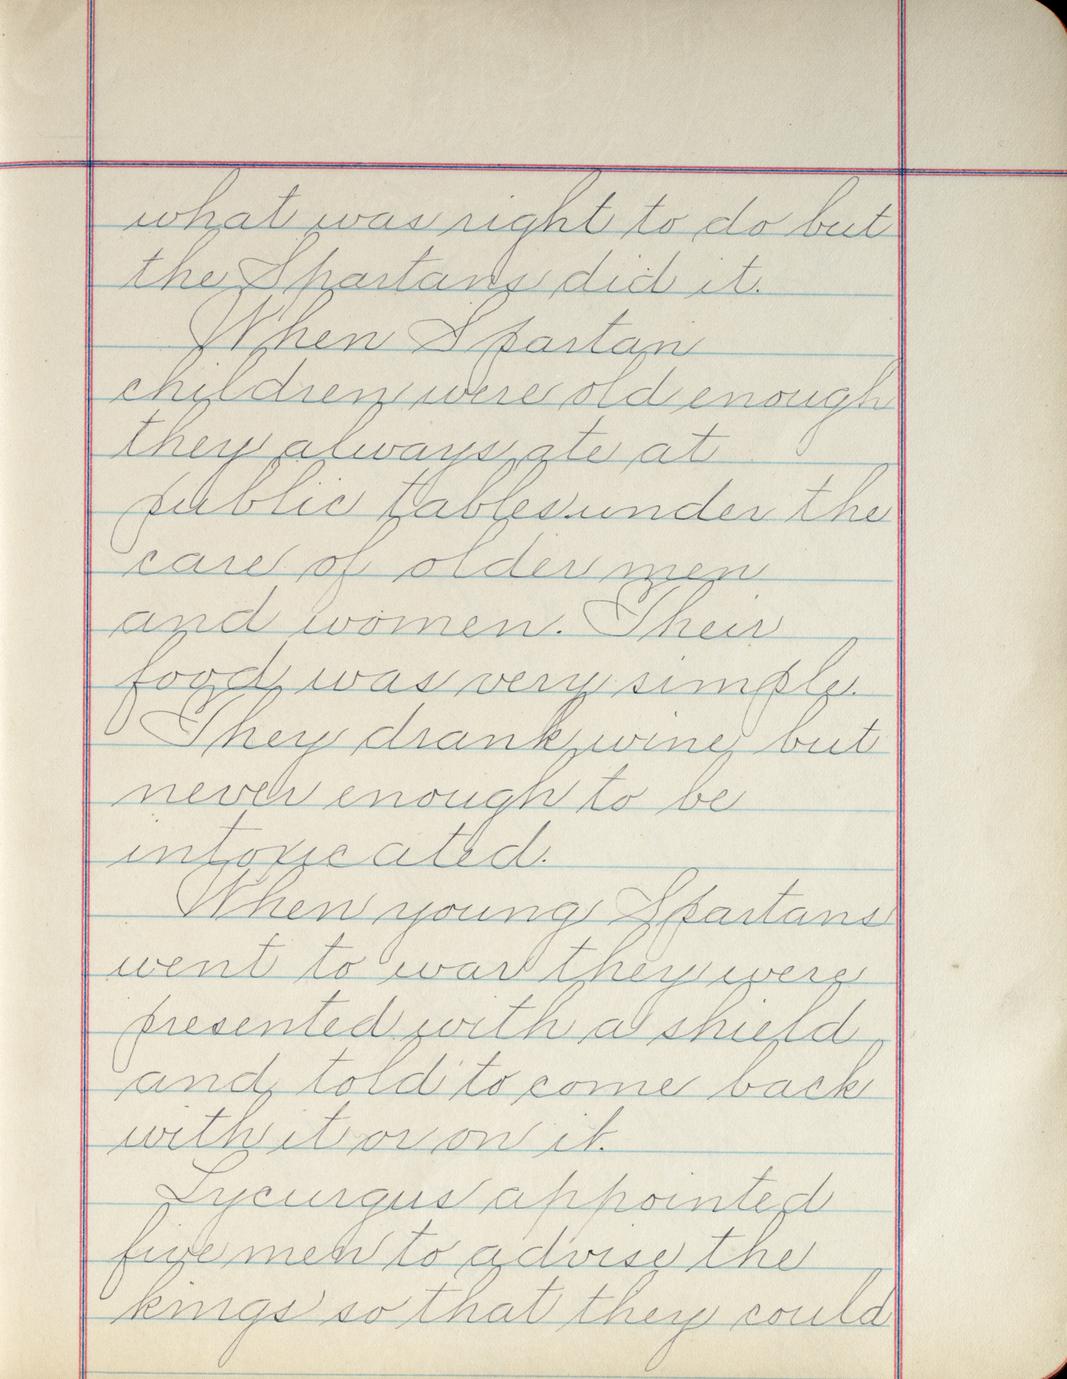 what was right to do but
the Spartans did it.
When Spartan
children were old enough
they always ate at
public tables under the
care of older men
and women. Their
food was very simple.
They drank wine but
never enough to be
intoxicated.
When young Spartans
went to war they were
presented with a shield
and told to come back
with it or on it.
Lycurgus appointed
five men to advise the
kings so that they could